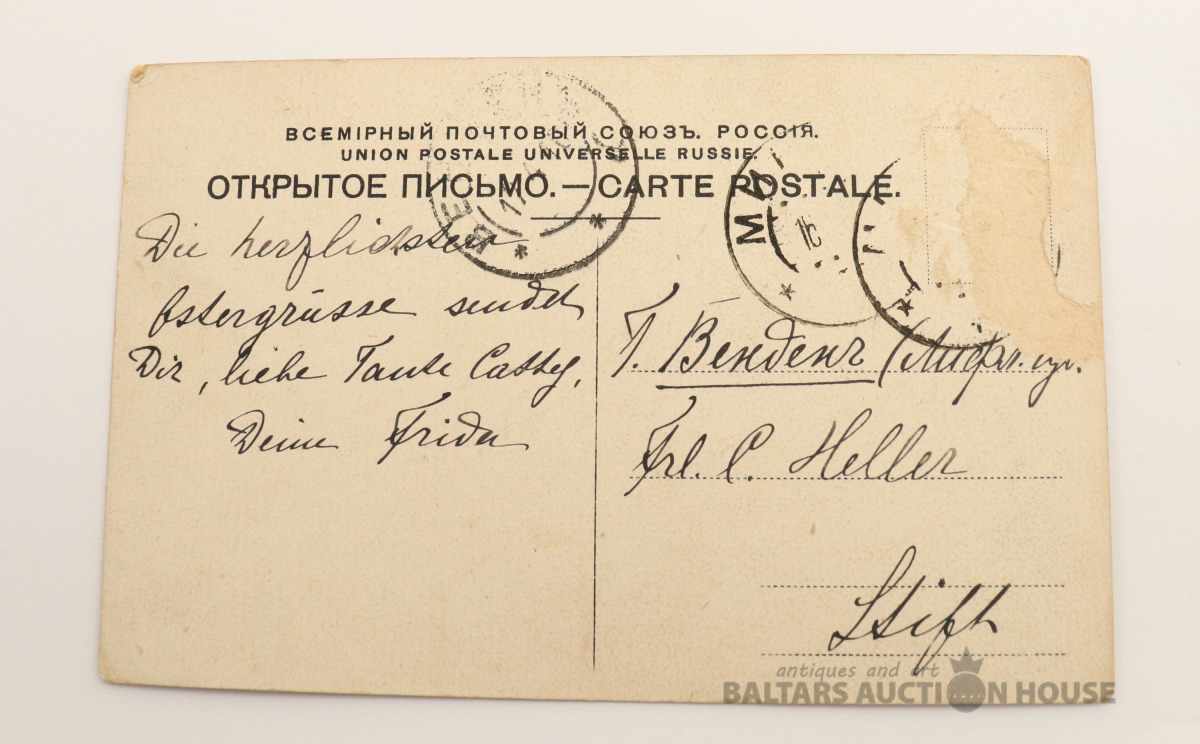 ВСЕМІРНЫЙ ПОЧТОВЫЙ СОЮЗЪ. РОССІЯ.
UNION POSTALE UNIVERSELLE RUSSIE.
ОТКРЫТОЕ ПИСЬМО. — CARTE POSTALE.
Die herzlichsten
Ostergrüsse sendet
Dir, liebe Tante Cathy,
Deine Frida
Г. Венденъ (Лифл. гу.
Frl. C. Heller
Stift
antiques and art
BALTARS AUCTION HOUSE